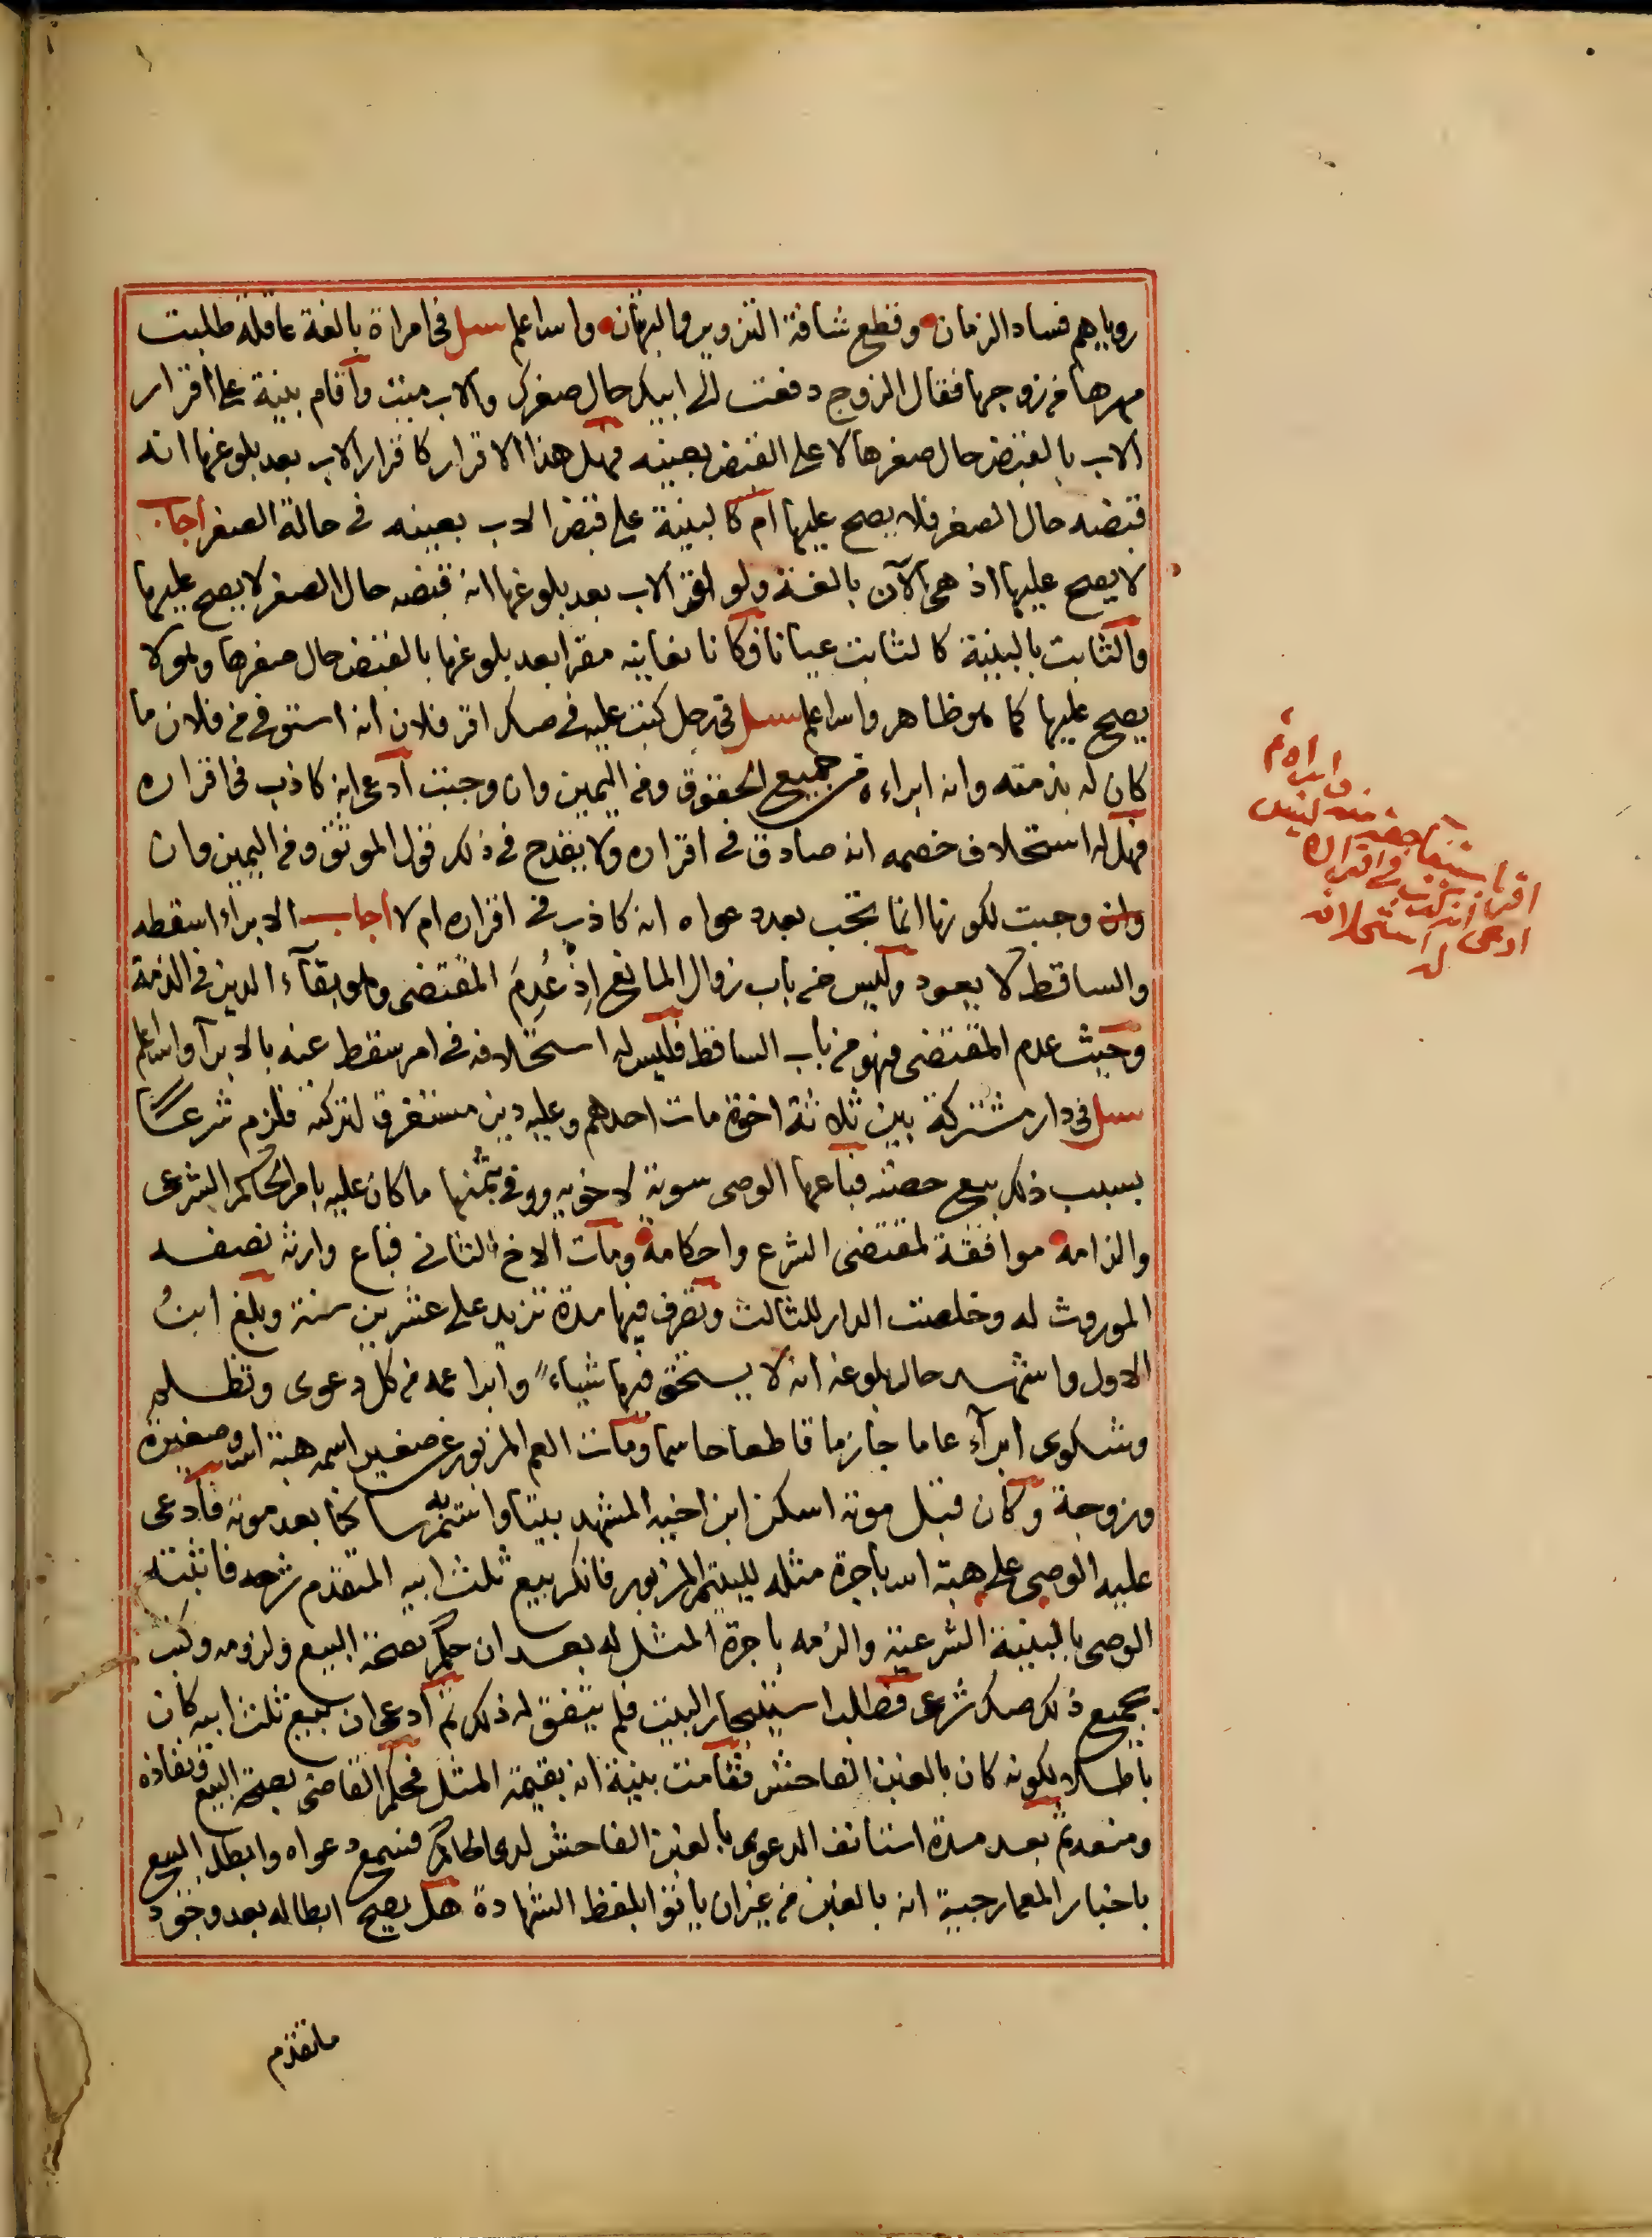 روياهم فساد الزمان وقطع شافة التزوير والبهتان والله اعلم سئل في امراة بالغة عاقلة طلبت
مهرها من زوجها فقال الزوج دفعت الى ابيك حال صغرك والاب ميت واقام بينة على اقرار
الاب بالقبض حال صغرها لا على القبض بعينه فهل هذا الاقرار كاقرار الاب بعد بلوغها انه
قبضه حال الصغر فلا يصح عليها ام كالبينة على قبض الاب بعينه في حالة الصغر اجاب
لا يصح عليها اذ هي الآن بالغة ولو اقر الاب بعد بلوغها انه قبضه حال الصغر لا يصح عليها
والثابت بالبينة كالثابت عيانا فكانا نعاينه مقرا بعد بلوغها بالقبض حال صغرها وهو لا
يصح عليها كما هو ظاهر والله اعلم سئل في رجل كتبت عليه في صك اقر فلان انه استوفى من فلان ما
كان له بذمته وانه ابراءه من جميع الحقوق ومن اليمين وان وجبت ادعى انه كاذب في اقراره
فهل له استحلاف خصمه انه صادق في اقراره ولا يقدح في ذلك قول الموثق ومن اليمين وان
وان وجبت لكونها انما تجب بعد دعواه انه كاذب في اقراره ام لا اجاب الابراء اسقطه
والساقط لا يعود وليس من باب زوال المانع اذ عُدِمَ المقتضى وهو بقآء الدين في الذمة
وحيث عدم المقتضى فهو من باب الساقط فليس له استحلافه في امر سقط عنه بالابرآ والله اعلم
سئل في دار مشتركة بين ثلاثة اخوة مات احدهم وعليه دين مستغرق لتركته فلزم شرعا
بسبب ذلك بيع حصته فباعها الوصى سوية لاخويه ووفى بثمنها ما كان عليه بامر الحاكم الشرعى
والزامه موافقة لمقتضى الشرع واحكامه ومات الاخ الثانى فباع وارثه نصفه
الموروث له وخلصت الدار للثالث وتصرف فيها مدة تزيد على عشرين سنة وبلغ ابنُ
الاول واشهد حال بلوغه انه لا يستحق فيها شياء وابرا عمه من كل دعوى وتظلم
وشكوى ابرآء عاما جازما قاطعا حاسما ومات العم المزبور عن صغير اسمه هبة الله وصغيرة
وزوجة وكان قبل موته اسكن ابن اخيه المشهد بيتا واستمر به ساكنا بعد موته فادعى
عليه الوصى على هبة الله باجرة مثله لليتيم المزبور فانكر بيع ثلث ابيه المتقدم شرحه فاثبته
الوصى بالبينة الشرعية والزمه باجرة المثل له بعد ان حكم بصحة البيع ولزومه وكتب
بجميع ذلك صك شرعى فطلب استيجار البيت فلم يتفق له ذلك ثم ادعى ان بيع ثلث ابيه كان
باطلا لكونه كان بالغبن الفاحش فقامت بينة انه بقيمة المثل فحكم القاضى بصحة البيع ونفاذه
ومنعه ثم بعد مدة استانف الدعوى بالغبن الفاحش لدى الحاكم فسمع دعواه وابطل البيع
باخبار المعمارجية انه بالغبن من غير ان ياتوا بلفظ الشهادة هل يصح ابطاله بعد وجود
ما تقدم
وابراءه
اقر باستيفا حقه منه ليس
ادعى انه كذب في اقراره
له استحلافه